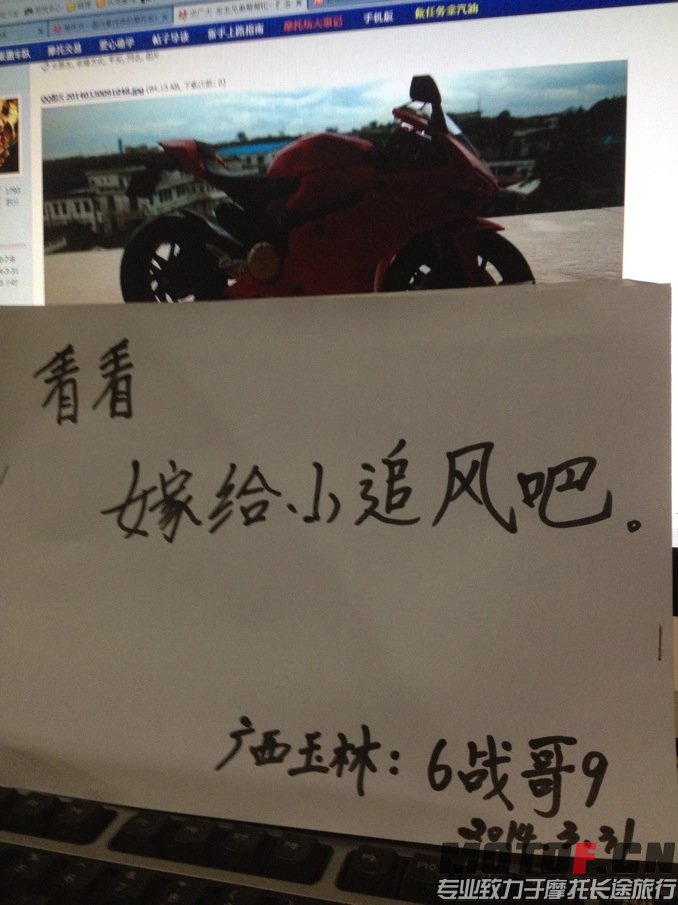 摩托交易 爱心助学 帖子导读 新手上路指南 摩托坊大事记 手机版 做任务拿汽油
QQ图片20140320091048.jpg
看看
嫁给小追风吧。
广西玉林：6战哥9
2014.3.31
MOTOF.CN
专业致力于摩托长途旅行